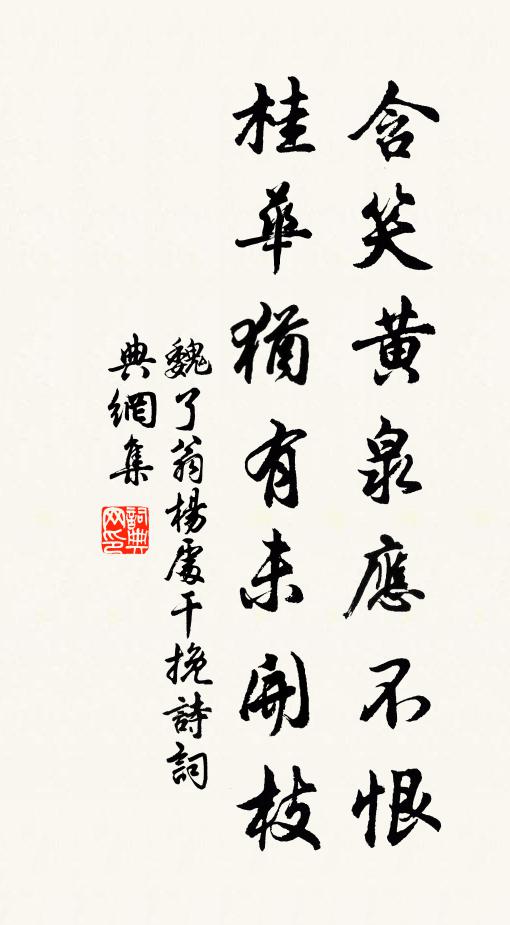 含笑黄泉應不恨
桂華猶有未開枝
魏了翁楊處干挽詩詞
典網集
詞典
网印